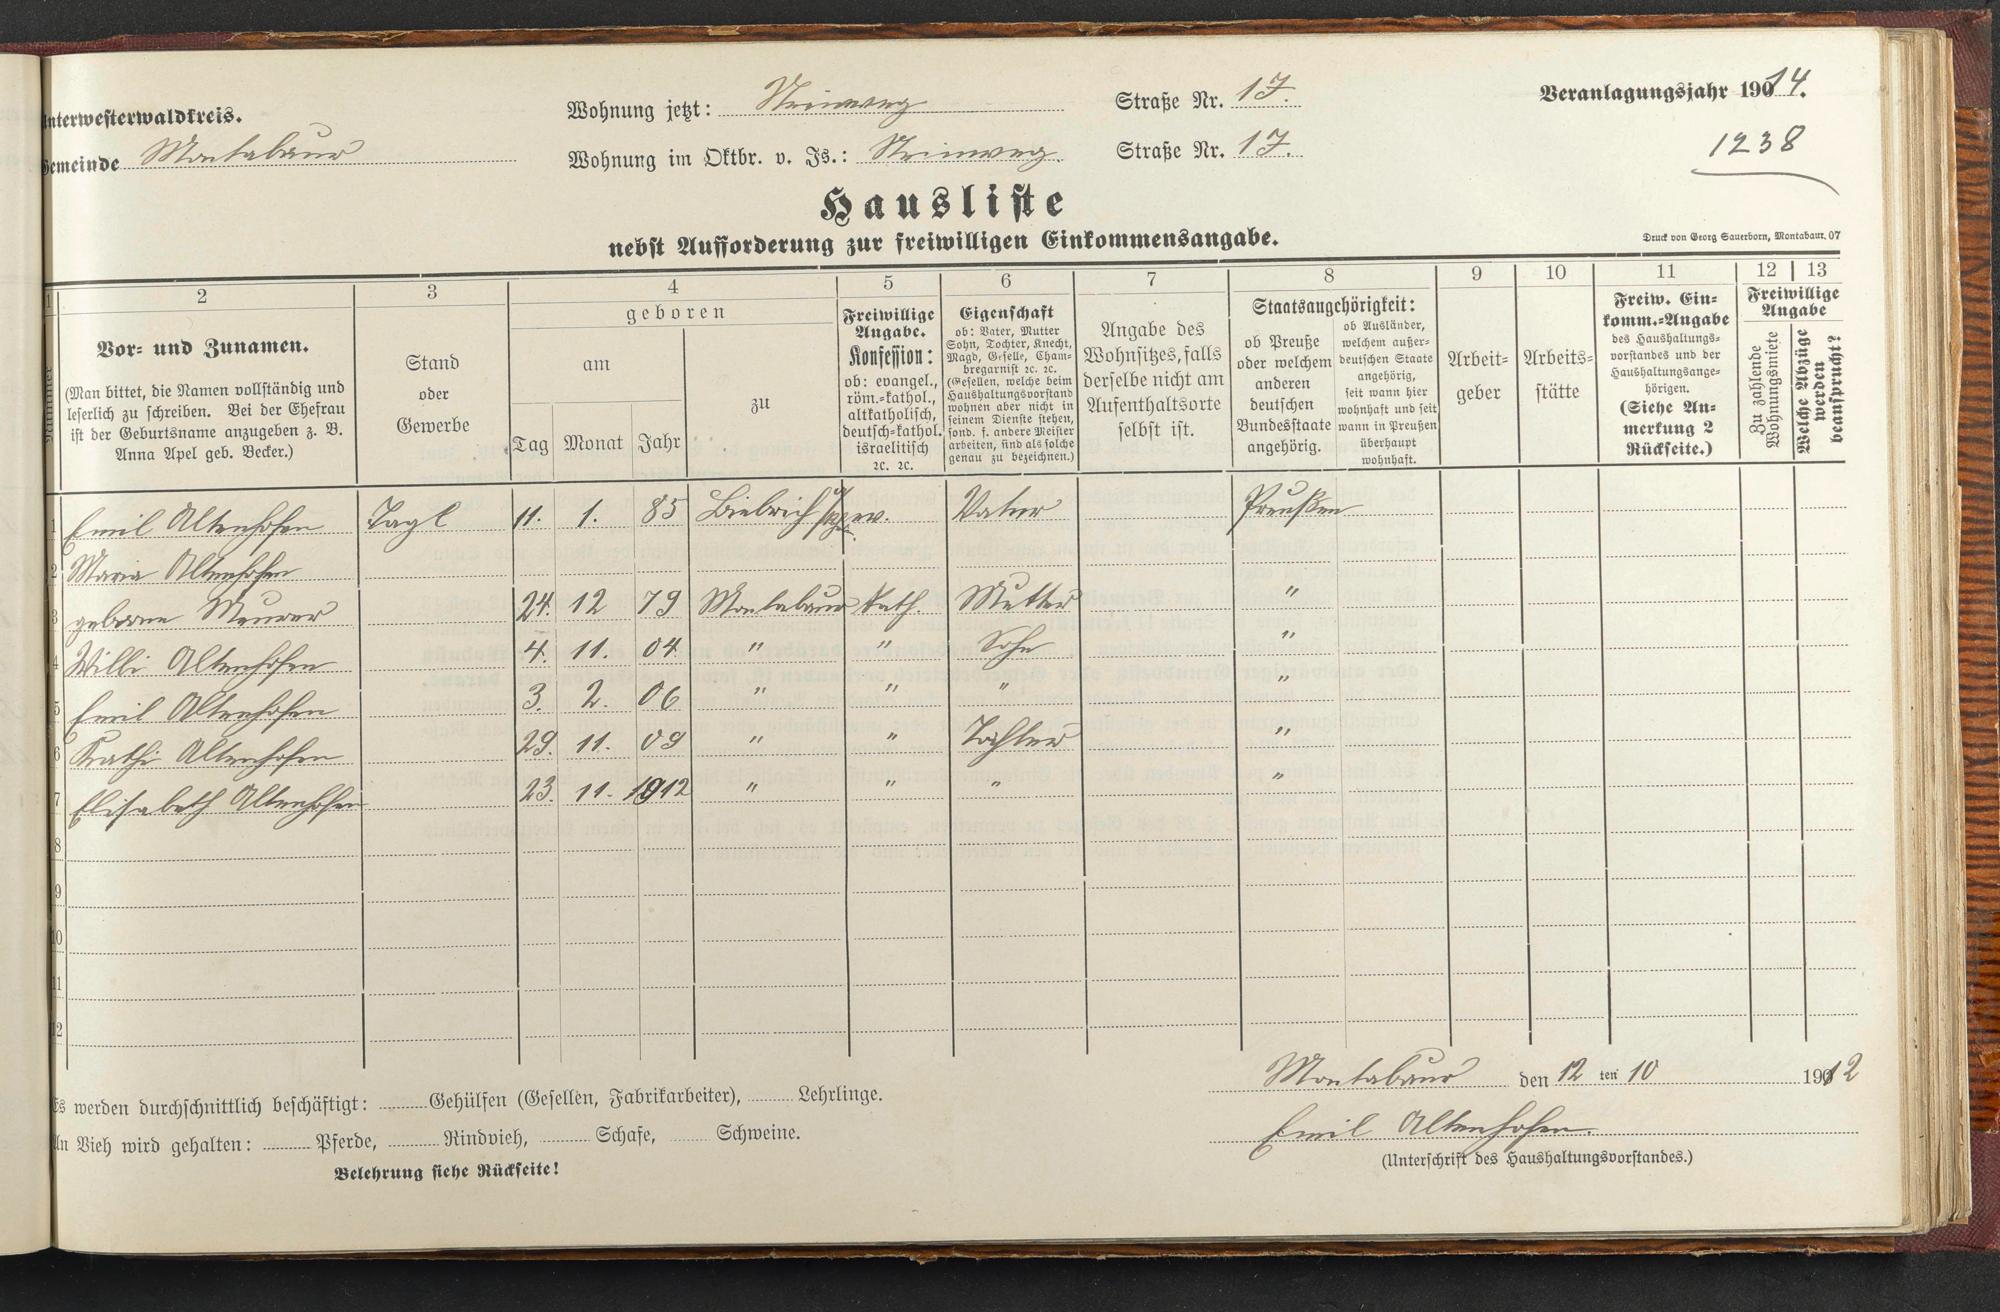 Unterwesterwaldkreis.
Gemeinde Montabaur
Wohnung jetzt: Steinweg Straße Nr. 17.
Wohnung im Oktbr. v. Js.: Steinweg. Straße Nr. 17.
Veranlagungsjahr 1914.
1238
Hausliste
nebst Aufforderung zur freiwilligen Einkommensangabe.
Druck von Georg Sauerborn, Montabaur. 07
1 2 3 4 5 6 7 8 9 10 11 12 13
Nummer
Vor- und Zunamen.
(Man bittet, die Namen vollständig und
leserlich zu schreiben. Bei der Ehefrau
ist der Geburtsname anzugeben z. B.
Anna Apel geb. Becker.)
Stand
oder
Gewerbe
geboren
am
zu
Tag Monat Jahr
Freiwillige
Angabe.
Konfession:
ob: evangel.,
röm.-kathol.,
altkatholisch,
deutsch-kathol.
israelitisch
ꝛc. ꝛc.
Eigenschaft
ob: Vater, Mutter
Sohn, Tochter, Knecht,
Magd, Geselle, Cham-
bregarnist ꝛc. ꝛc.
(Gesellen, welche beim
Haushaltungsvorstand
wohnen aber nicht in
seinem Dienste stehen,
sond. f. andere Meister
arbeiten, sind als solche
genau zu bezeichnen.)
Angabe des
Wohnsitzes, falls
derselbe nicht am
Aufenthaltsorte
selbst ist.
Staatsangehörigkeit:
ob Preuße
oder welchem
anderen
deutschen
Bundesstaate
angehörig.
ob Ausländer,
welchem außer-
deutschen Staate
angehörig,
seit wann hier
wohnhaft und seit
wann in Preußen
überhaupt
wohnhaft.
Arbeit-
geber
Arbeits-
stätte
Freiw. Ein-
komm.-Angabe
des Haushaltungs-
vorstandes und der
Haushaltungsange-
hörigen.
(Siehe An-
merkung 2
Rückseite.)
Freiwillige
Angabe
Zu zahlende
Wohnungsmiete
Welche Abzüge
werden
beansprucht?
1 Emil Altenhofen Tagl 11. 1. 85 Biebrich ev. Vater Preußen
2 Maria Altenhofen
3 geborene Meurer 24. 12 79 Montabaur Kath. Mutter "
4 Willi Altenhofen 4. 11. 04 " " Sohn "
5 Emil Altenhofen 3. 2. 06 " " " "
6 Kathi Altenhofen 29. 11. 09 " " Tochter "
7 Elisabeth Altenhofen 23. 11. 1912 " " " "
8
9
10
11
12
Es werden durchschnittlich beschäftigt: Gehülfen (Gesellen, Fabrikarbeiter), Lehrlinge.
An Vieh wird gehalten: Pferde, Rindvieh, Schafe, Schweine.
Belehrung siehe Rückseite!
Montabaur den 12 ten 10 1912
Emil Altenhofen.
(Unterschrift des Haushaltungsvorstandes.)